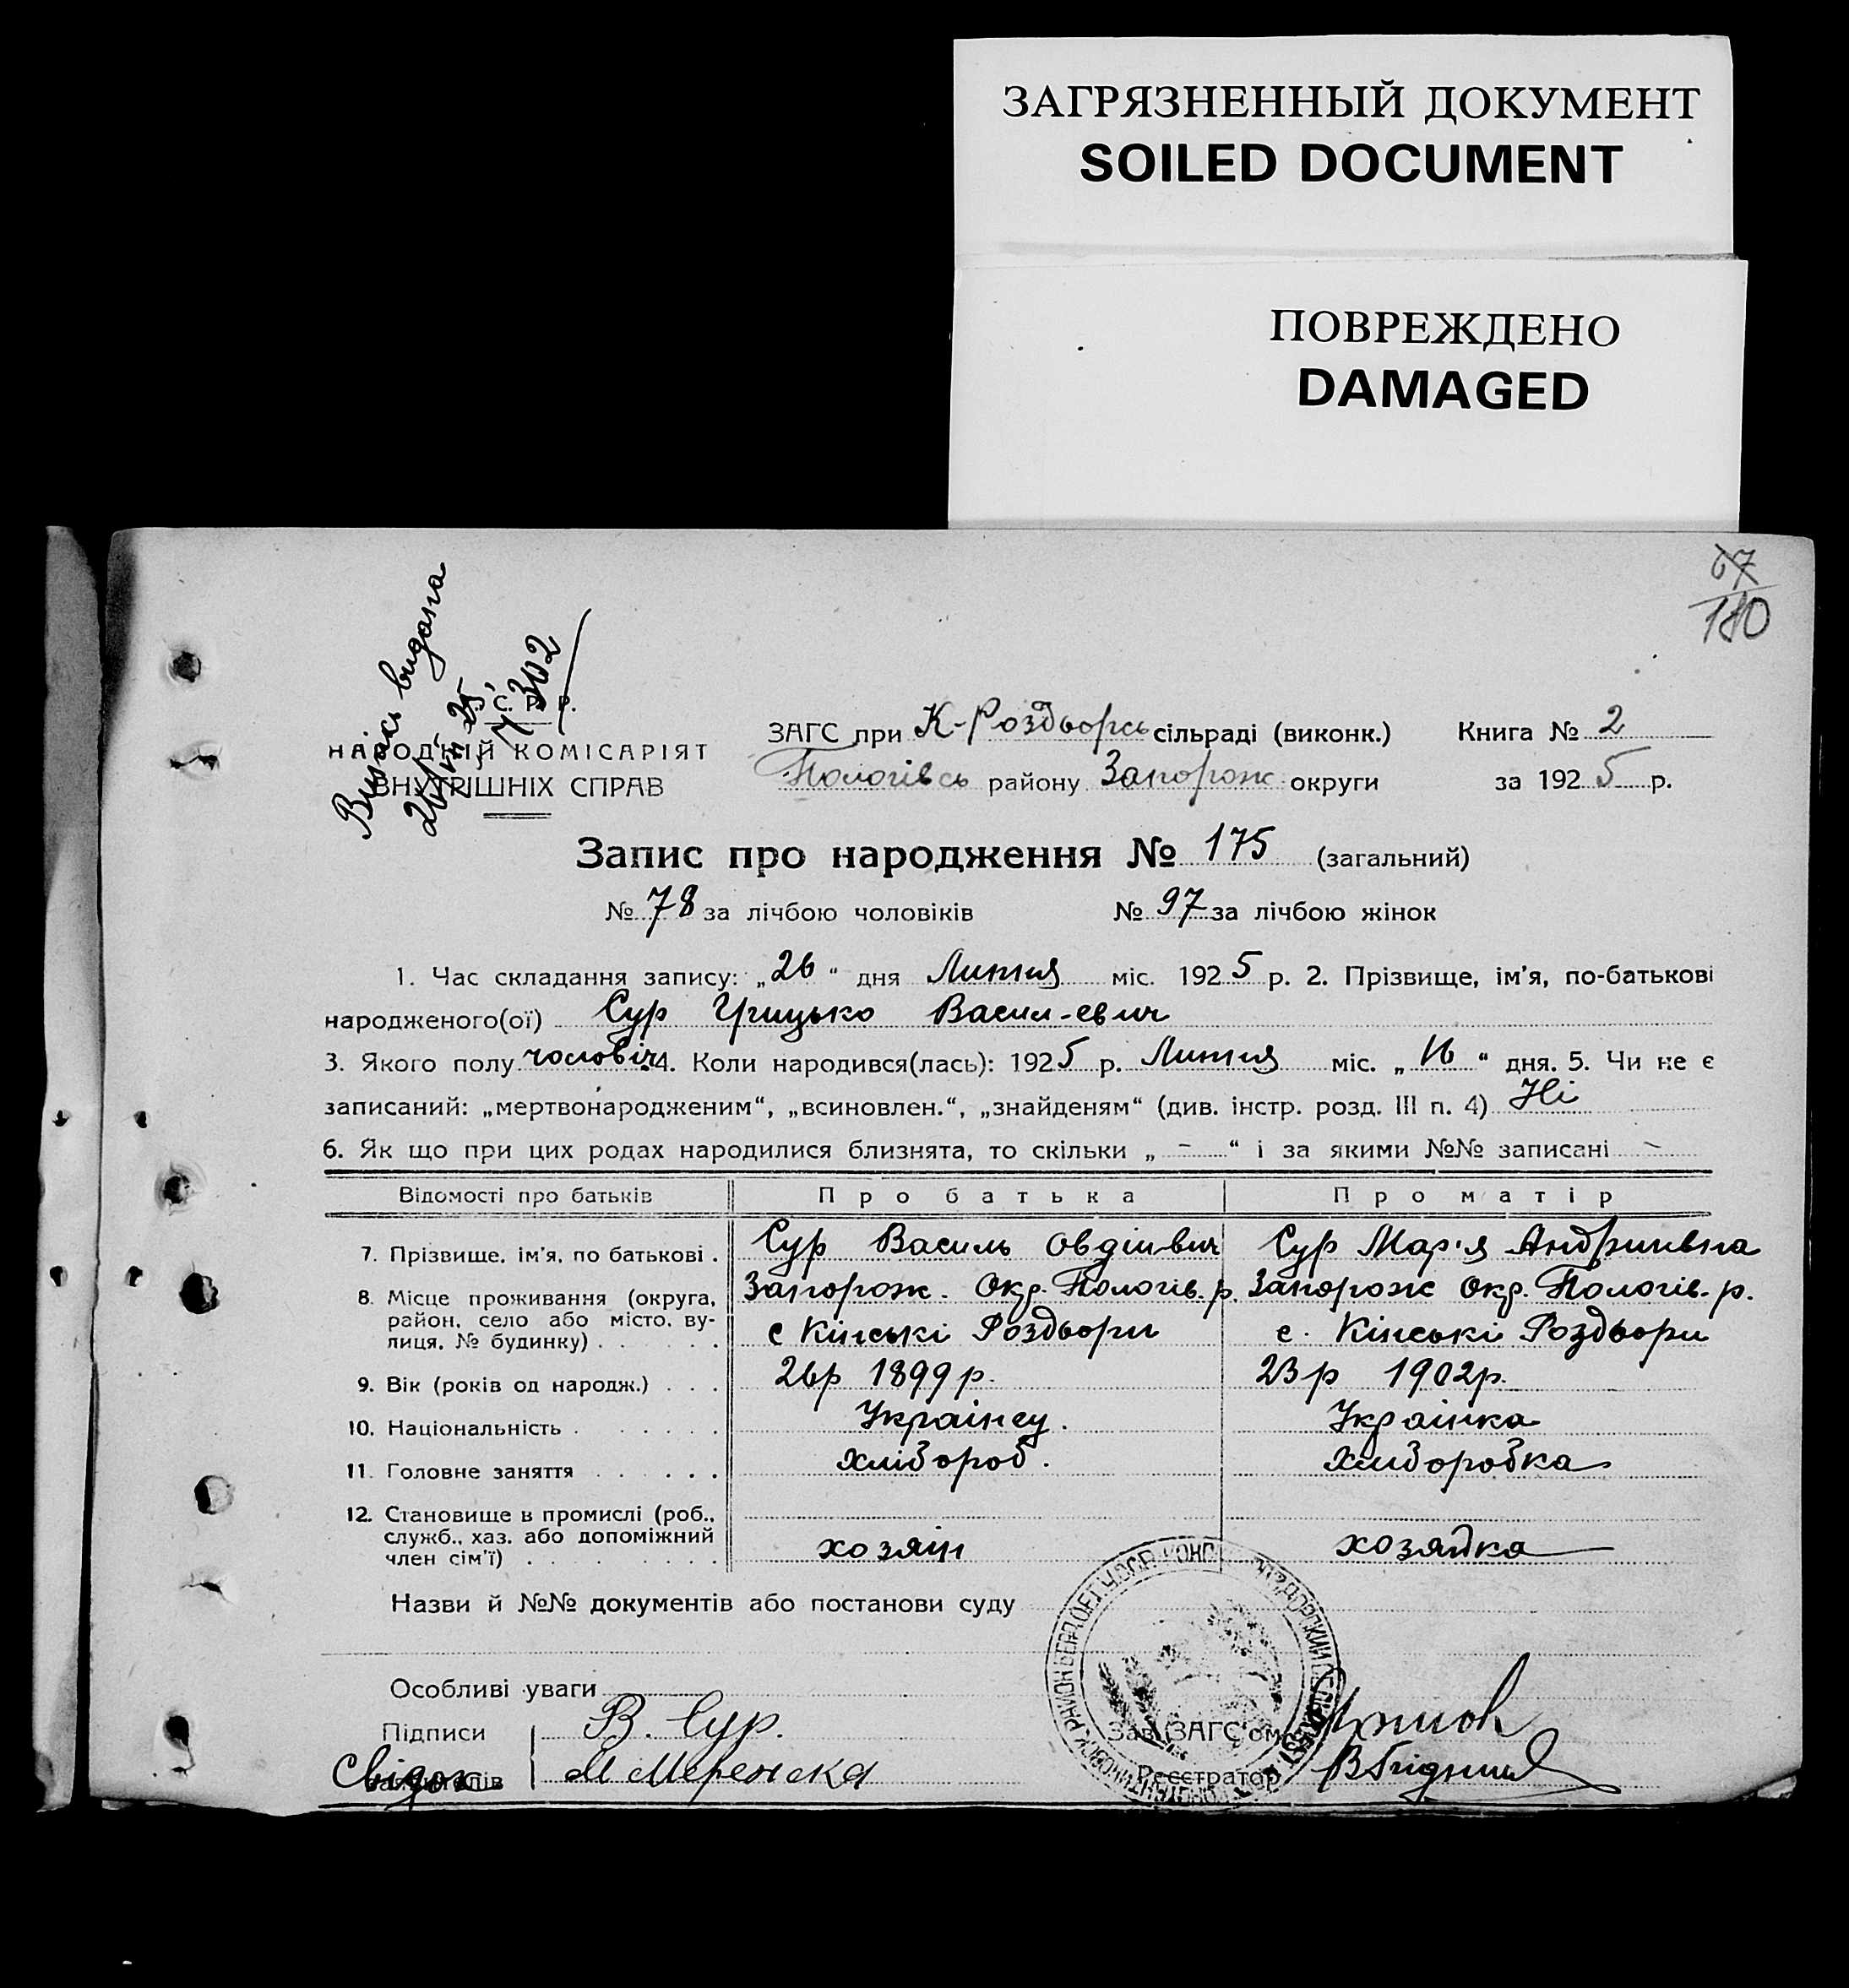 ЗАГРЯЗНЕННЫЙ ДОКУМЕНТ
SOILED DOCUMENT
ПОВРЕЖДЕНО
DAMAGED
67
180
Випись видана
302
С. Р. Р.
НАРОДНІЙ КОМІСАРІЯТ
ВНУТРІШНІХ СПРАВ
ЗАГС при К-Роздворсь сільраді (виконк.) Книга № 2
Пологівсь району Запорож округи за 1925 р.
Запис про народження № 175 (загальний)
№ 78 за лічбою чоловіків № 97 за лічбою жінок
1. Час складання запису: „26“ дня Липня міс. 1925 р. 2. Прізвище, ім'я, по-батькові
народженого(ої) Сур Грицько Васил-евич
3. Якого полу чоловіч 4. Коли народився(лась): 1925 р. Липня міс. „16“ дня. 5. Чи не є
записаний: „мертвонародженим“, „всиновлен.“, „знайденям“ (див. інстр. розд. III п. 4) Ні
6. Як що при цих родах народилися близнята, то скільки „ – “ і за якими №№ записані –
Відомості про батьків Про батька Про матір
7. Прізвище, ім'я, по батькові . Сур Василь Овдієвич Сур Мар'я Андріивна
8. Місце проживання (округа, Запорож. Окр. Пологів. р. Запорож Окр. Пологів. р.
район, село або місто, ву-
лиця, № будинку) . . . с Кінські Роздори с. Кінські Роздори
9. Вік (років од народж.) . . . 26р 1899р. 23р 1902р.
10. Національність . . . Украінец. Украінка
11. Головне заняття . . . хлібороб. хліборобка
12. Становище в промислі (роб.,
служб., хаз. або допоміжний
член сім'ї) . . . хозяін хозяйка
Назви й №№ документів або постанови суду
Особливі уваги
Підписи В. Сур. Зав. ЗАГС'ом
Свідок Реєстратор